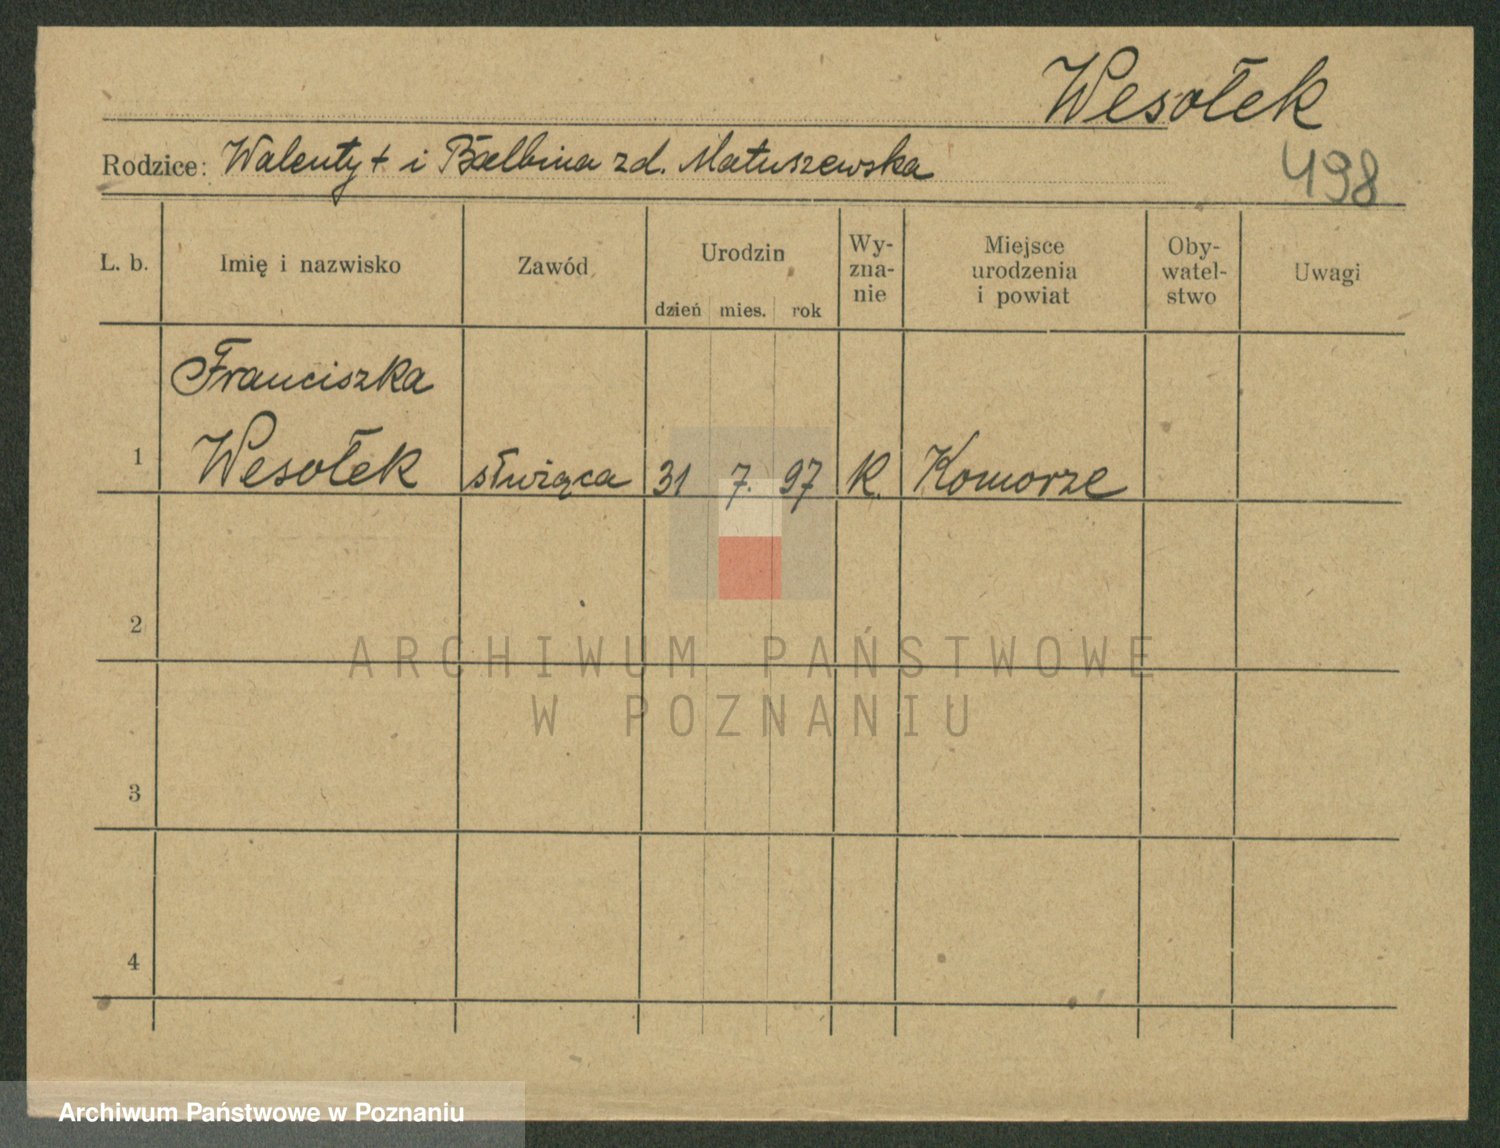 Wesołek
Rodzice: Walenty + i Balbina zd. Matuszewska
498
L. b.
Imię i nazwisko
Zawód
Urodzin
dzień mies. rok
Wy-
zna-
nie
Miejsce
urodzenia
i powiat
Oby-
watel-
stwo
Uwagi
Franciszka
1 Wesołek służąca 31 7. 97 K. Komorze
2
ARCHIWUM PAŃSTWOWE
W POZNANIU
3
4
Archiwum Państwowe w Poznaniu